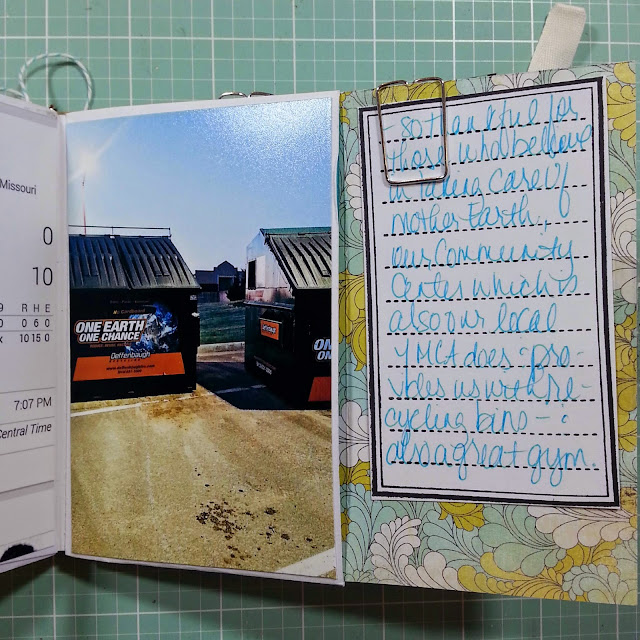 Missouri
0
10
9 R H E
0 0 6 0
x 10 15 0
7:07 PM
Central Time
ONE EARTH
ONE CHANCE
Deffenbaugh
Deffenbaugh
ONE
- so thankful for
those who believe
in taking care of
Mother Earth,
our community
center which is
also our local
YMCA does - pro-
vides us with re-
cycling bins - &
also a great gym.